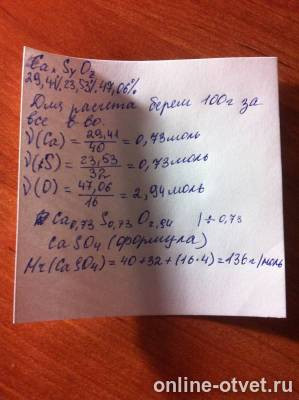 CaxSyOz
29,41% 23,53% 47,06%
Для расчета берем 100г за
все в-во.
ν(Ca) = 29,41/40 = 0,73моль
ν(S) = 23,53/32 = 0,73моль
ν(O) = 47,06/16 = 2,94моль
Ca0,73 S0,73 O2,94 | ÷ 0,73
CaSO4 (формула)
Mr(CaSO4) = 40+32+(16·4)=136г/моль
online-otvet.ru